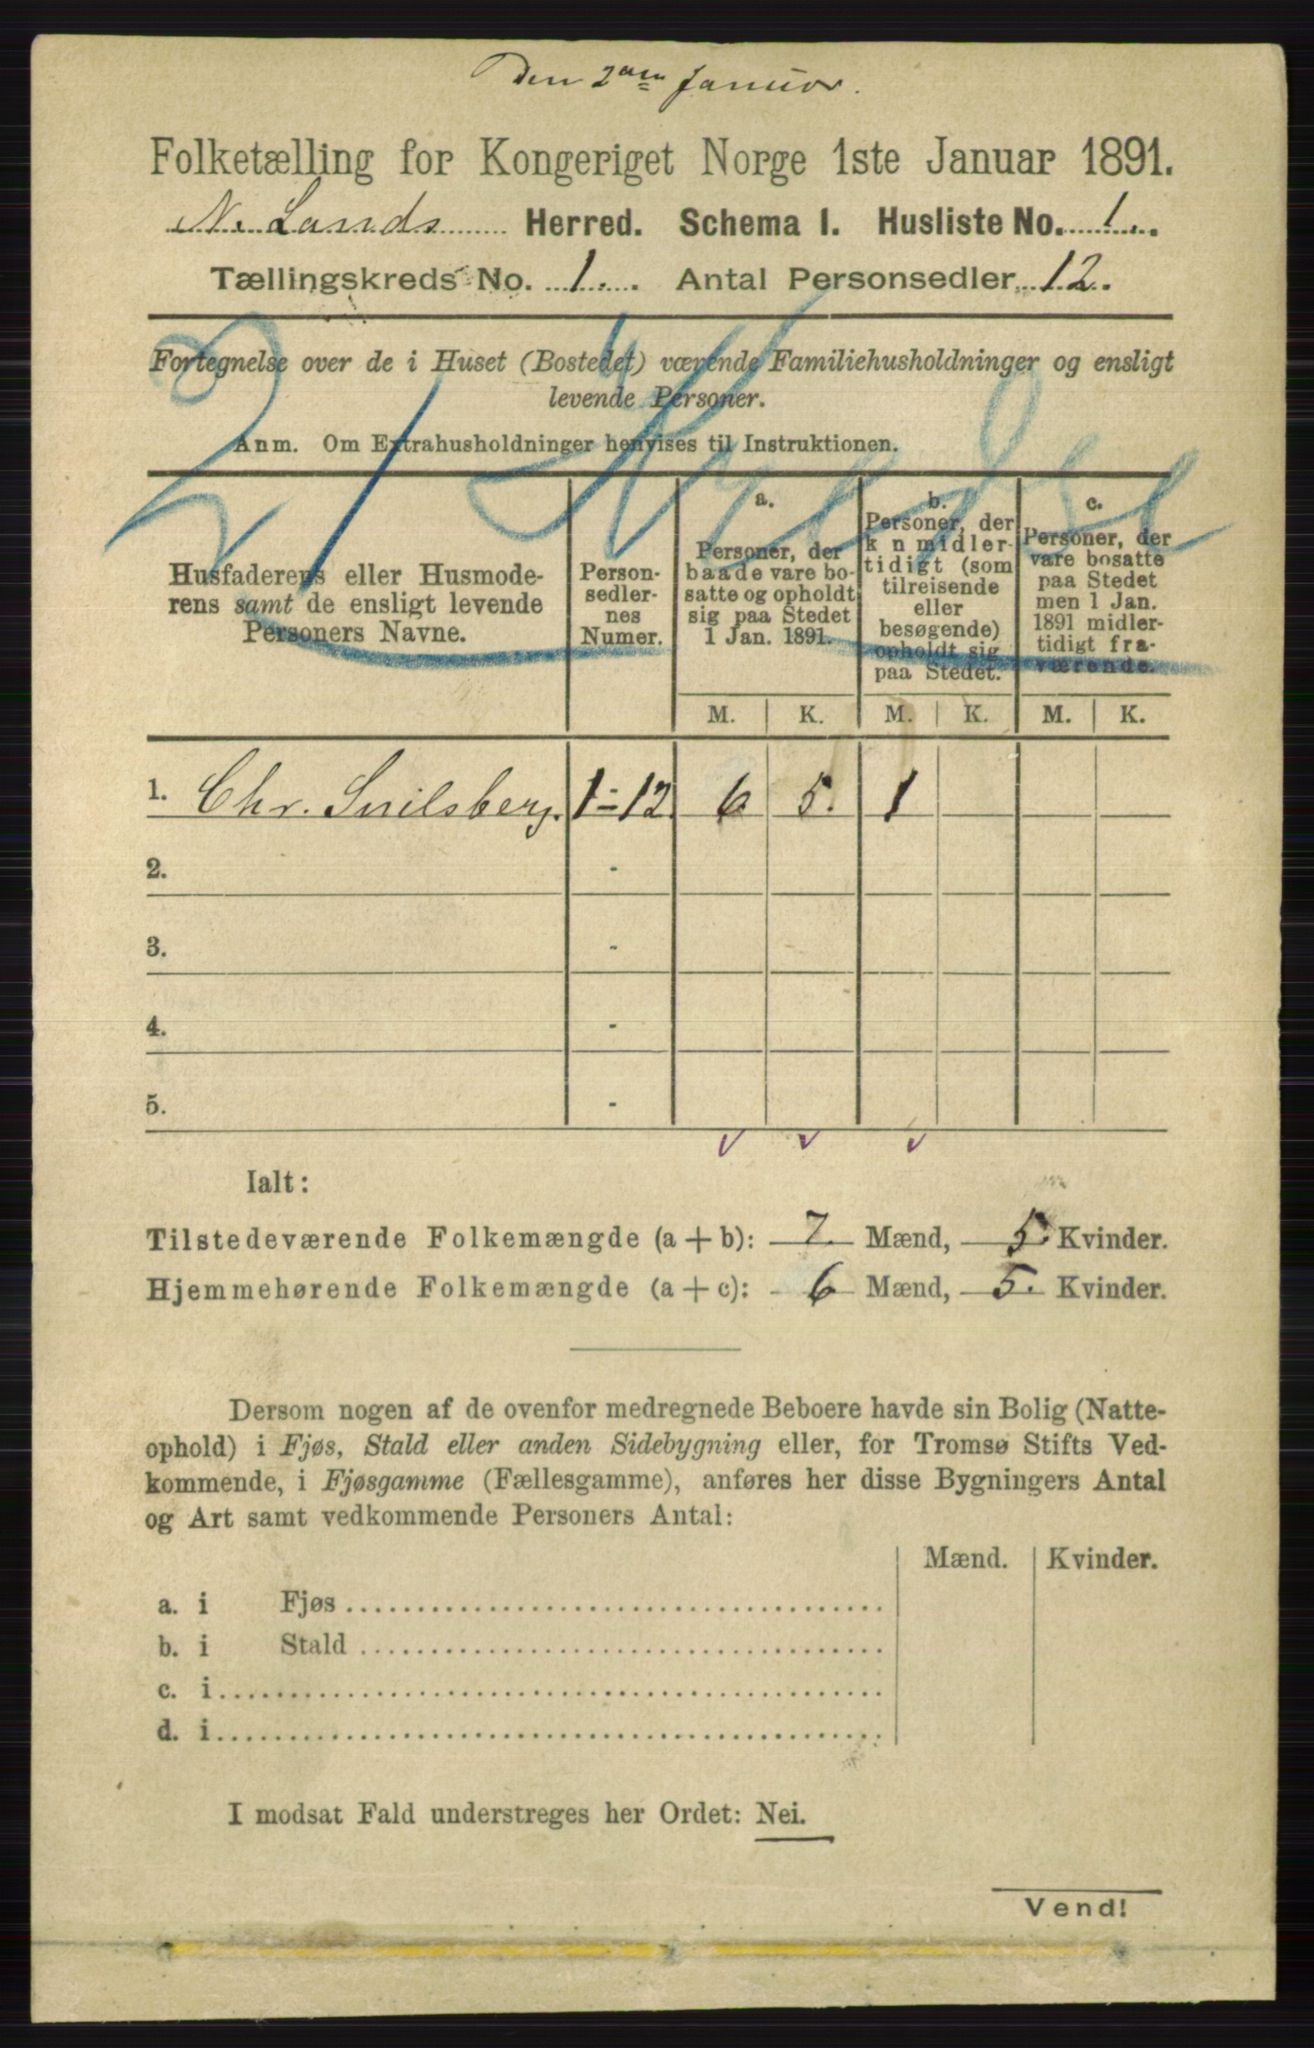 Den 2den Januar.
Folketælling for Kongeriget Norge 1ste Januar 1891.
N. Lands Herred. Schema I. Husliste No. 1.
Tællingskreds No. 1. Antal Personsedler 12.
Fortegnelse over de i Huset (Bostedet) værende Familiehusholdninger og ensligt
levende Personer.
Anm. Om Extrahusholdninger henvises til Instruktionen.
Husfaderens eller Husmode-
rens samt de ensligt levende
Personers Navne.
Person-
sedler-
nes
Numer.
a.
Personer, der
baade vare bo-
satte og opholdt
sig paa Stedet
1 Jan. 1891.
b.
Personer, der
k n midler-
tidigt (som
tilreisende
eller
besøgende)
opholdt sig
paa Stedet.
c.
Personer, der
vare bosatte
paa Stedet
men 1 Jan.
1891 midler-
tidigt fra-
værende.
M. K. M. K. M. K.
1. Chr. Snilsberg. 1-12 6 5. 1
2. -
3. -
4. -
5. -
Ialt:
Tilstedeværende Folkemængde (a + b): 7. Mænd, 5. Kvinder.
Hjemmehørende Folkemængde (a + c): 6 Mænd, 5. Kvinder.
Dersom nogen af de ovenfor medregnede Beboere havde sin Bolig (Natte-
ophold) i Fjøs, Stald eller anden Sidebygning eller, for Tromsø Stifts Ved-
kommende, i Fjøsgamme (Fællesgamme), anføres her disse Bygningers Antal
og Art samt vedkommende Personers Antal:
Mænd. Kvinder.
a. i Fjøs
b. i Stald
c. i
d. i
I modsat Fald understreges her Ordet: Nei.
Vend!